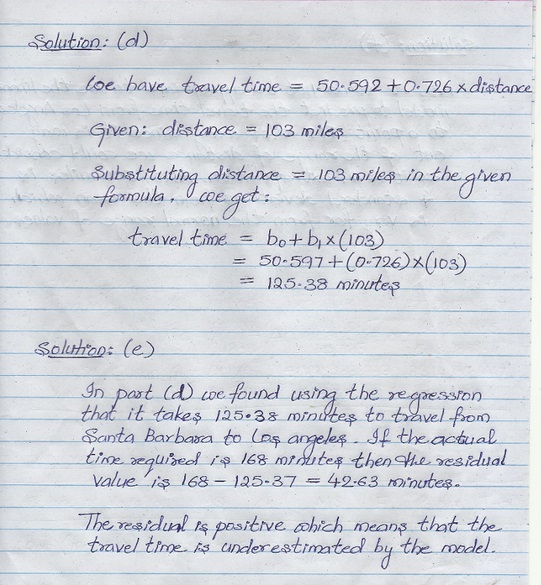 Solution: (d)
We have travel time = 50.592 + 0.726 x distance
Given: distance = 103 miles
Substituting distance = 103 miles in the given
formula, we get:
travel time = b₀ + b₁ x (103)
= 50.597 + (0.726) x (103)
= 125.38 minutes
Solution: (e)
In part (d) we found using the regression
that it takes 125.38 minutes to travel from
Santa Barbara to Los angeles. If the actual
time required is 168 minutes then the residual
value is 168 - 125.37 = 42.63 minutes.
The residual is positive which means that the
travel time is underestimated by the model.